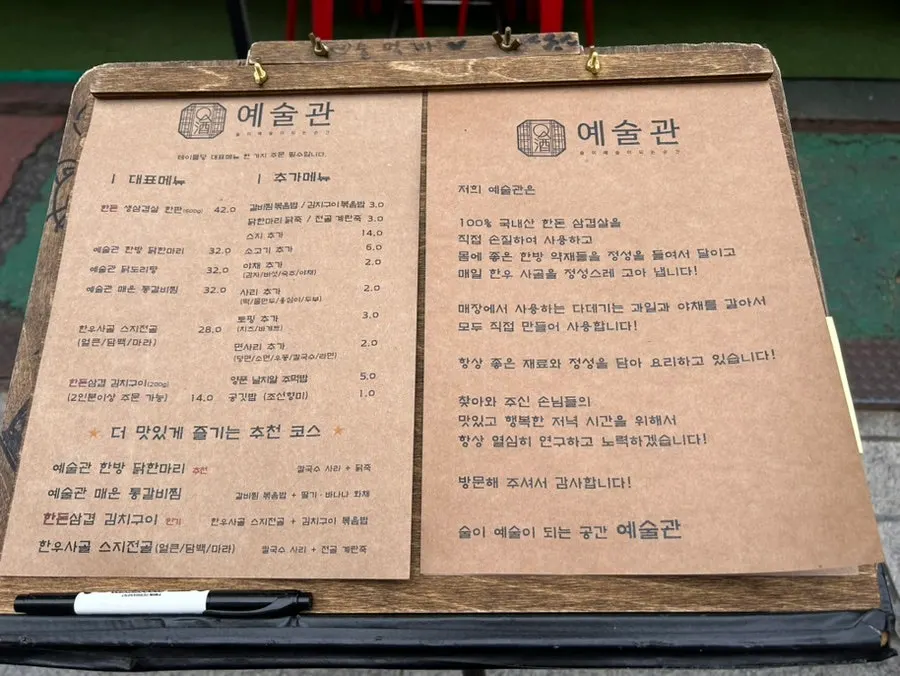 예술관
술이예술이되는공간
테이블당 대표메뉴 한 가지 주문 필수입니다.
| 대표메뉴
한돈 생삼겹살 한판(600g) 42.0
예술관 한방 닭한마리 32.0
예술관 닭도리탕 32.0
예술관 매운 통갈비찜 32.0
한우사골 스지전골 28.0
(얼큰/담백/마라)
한돈삼겹 김치구이(200g)
(2인분이상 주문 가능) 14.0
| 추가메뉴
갈비찜볶음밥 / 김치구이볶음밥 3.0
닭한마리 닭죽 / 전골 계란죽 3.0
스지 추가 14.0
소고기 추가 6.0
야채 추가 2.0
(감자/버섯/숙주/야채)
사리 추가 2.0
(떡/물만두/옹심이/두부)
토핑 추가 3.0
(치즈/바게트)
면사리 추가 2.0
(당면/소면/우동/칼국수/라면)
양푼 날치알 주먹밥 5.0
공깃밥 (조선향미) 1.0
★ 더 맛있게 즐기는 추천 코스 ★
예술관 한방 닭한마리 추천 칼국수 사리 + 닭죽
예술관 매운 통갈비찜 갈비찜 볶음밥 + 딸기·바나나 화채
한돈삼겹 김치구이 인기 한우사골 스지전골 + 김치구이 볶음밥
한우사골 스지전골(얼큰/담백/마라) 칼국수 사리 + 전골 계란죽
예술관
술이예술이되는공간
저희 예술관은
100% 국내산 한돈 삼겹살을
직접 손질하여 사용하고
몸에 좋은 한방 약재들을 정성을 들여서 달이고
매일 한우 사골을 정성스레 고아 냅니다!
매장에서 사용하는 다데기는 과일과 야채를 갈아서
모두 직접 만들어 사용합니다!
항상 좋은 재료와 정성을 담아 요리하고 있습니다!
찾아와 주신 손님들의
맛있고 행복한 저녁 시간을 위해서
항상 열심히 연구하고 노력하겠습니다!
방문해 주셔서 감사합니다!
술이 예술이 되는 공간 예술관